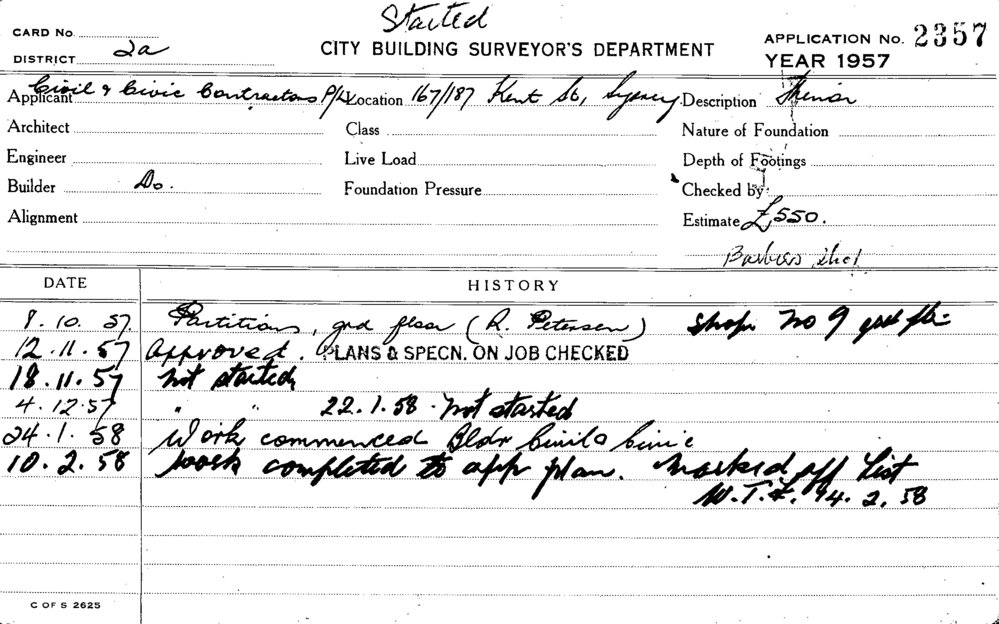 Started
CARD No.
CITY BUILDING SURVEYOR'S DEPARTMENT
APPLICATION No. 2357
DISTRICT 2a
YEAR 1957
Applicant Civil & Civic Contractors P/L Location 167/187 Kent St, Sydney Description
Architect Class Nature of Foundation
Engineer Live Load Depth of Footings
Builder Do. Foundation Pressure Checked by
Alignment Estimate £550.
Barbers shop
DATE HISTORY
8.10.57 Partitions, grd floor (R. Petersen) shop No 9 grd flr
12.11.57 Approved. PLANS & SPECN. ON JOB CHECKED
18.11.57 Not started
4.12.57 " " 22.1.58 Not started
24.1.58 Work commenced Bldr Civil & Civic
10.2.58 Work completed to app plan. Marked off List
14.2.58
C OF S 2625